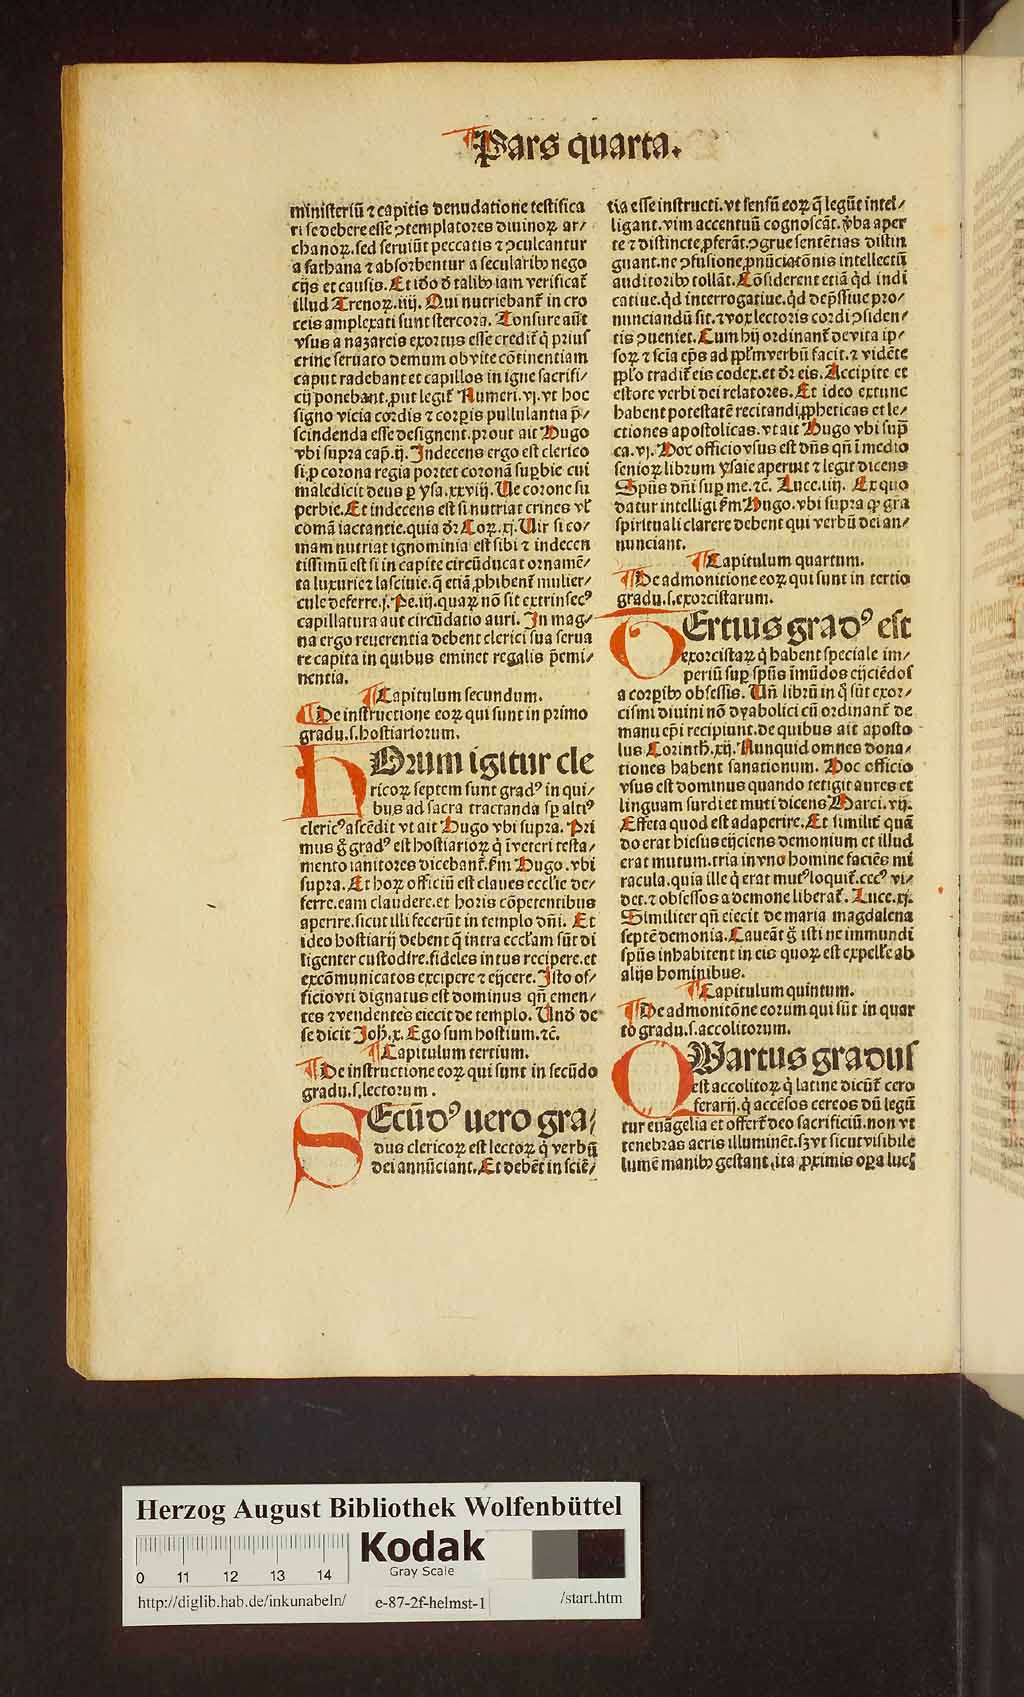 ¶Pars quarta.
ministeriū ⁊ capitis denudatione testifica
ri se debere esse ꝯtemplatores diuinoꝝ ar/
chanoꝝ. sed seruiūt peccatis ⁊ ꝯculcantur
a sathana ⁊ absorbentur a secularibꝰ nego
cijs et causis. Et iđo đ talibꝰ iam verificat᷑
illud Trenoꝝ. iiij. Qui nutriebant᷑ in cro
ceis amplexati sunt stercora. Tonsure aūt
vsus a nazareis exortus esse credit᷑ q̇ prius
crine seruato demum ob vite cōtinentiam
caput radebant et capillos in igne sacrifi/
cij ponebant. ꝓut legit᷑ Numeri. vj. vt hoc
signo vicia cordis ⁊ corꝑis pullulantia p̄/
scindenda esse designent. prout ait Hugo
vbi supra cap̄. ij. Indecens ergo est clerico
si. ꝓ corona regia portet coronā suꝑbie cui
maledicit deus ꝑ ysa. xxviij. Ue corone su
perbie. Et indecens est si nutriat crines vl᷑
comā iactantie. quia đr Coꝝ. xj. Uir si co/
mam nutriat ignominia est sibi ⁊ indecen
tissimū est si in capite circūducat ornamē/
ta luxurie ⁊ lasciuie. q̄ etiā ꝓhibent᷑ mulier/
cule deferre. j. Pe. iij. quaꝝ nō sit extrinsecꝰ
capillatura aut circūdatio auri. In mag/
na ergo reuerentia debent clerici sua serua
re capita in quibus eminet regalis p̄emi/
nentia.
¶Capitulum secundum.
¶De instructione eoꝝ qui sunt in primo
gradu. s. hostiariorum.
HOrum igitur cle
ricoꝝ septem sunt gradꝰ in qui/
bus ad sacra tractanda sꝑ altiꝰ
clericꝰ ascēdit vt ait Hugo vbi supra. Pri
mus g̊ gradꝰ est hostiarioꝝ q̇ ī veteri testa/
mento ianitores dicebant᷑. ẜm Hugo. vbi
supra. Et hoꝝ officiū est claues eccl᷑ie de/
ferre. eam claudere. et horis cōpetentibus
aperire. sicut illi fecerūt in templo dn̄i. Et
ideo hostiarij debent q̄ intra eccl᷑am sūt di
ligenter custodire. fideles intus recipere. et
excōmunicatos excipere ⁊ eijcere. Isto of/
ficio vti dignatus est dominus qn̄ emen/
tes ⁊ vendentes eiecit de templo. Unđ de
se dicit Joh. x. Ego sum hostium. ⁊c.
¶Capitulum tertium.
¶De instructione eoꝝ qui sunt in secūdo
gradu. s. lectorum.
SEcūdꝰ uero gra/
dus clericoꝝ est lectoꝝ q̇ verbū
dei annūciant. Et debēt in sciē/
tia esse instructi. vt sensū eoꝝ q̄ legūt intel/
ligant. vim accentuū cognoscāt. v̄ba aper
te ⁊ distincte ꝓferāt. ꝯgrue sentētias distin
guant. ne ꝯfusione ꝓnūciatōnis intellectū
auditoribꝰ tollāt. Cōsiderent etiā qđ indi
catiue. qđ interrogatiue. qđ dep̄ssiue pro/
nunciandū sit. ⁊ vox lectoris cordi ꝯsiden/
tis ꝯueniet. Cum hij ordinant᷑ de vita ip/
soꝝ ⁊ scīa ep̄s ad ppl᷑m verbū facit. ⁊ vidēte
ppl᷑o tradit᷑ eis codex. et đr eis. Accipite et
estote verbi dei relatores. Et ideo ex tunc
habent potestatē recitandi ꝓpheticas et le/
ctiones apostolicas. vt ait Hugo vbi sup̄
ca. vj. Hoc officio vsus est dn̄s qn̄ ī medio
senioꝝ librum ysaie aperuit ⁊ legit dicens
Spūs dn̄i suꝑ me. ⁊c. Luce. iiij. Ex quo
datur intelligi ẜm Hugo. vbi supra ꝙ gr̄a
spirituali clarere debent qui verbū dei an/
nunciant.
¶Capitulum quartum.
¶De admonitione eoꝝ qui sunt in tertio
gradu. s. exorcistarum.
TErtius gradꝰ est
exorcistaꝝ q̇ habent speciale im/
periū suꝑ spūs īmūdos eijciēdos
a corꝑibꝰ obsessis. Un̄ librū in q̊ sūt exor/
cismi diuini nō dyabolici cū ordinant᷑ de
manu ep̄i recipiunt. de quibus ait aposto
lus Corinth. xij. Nunquid omnes dona/
tiones habent sanationum. Hoc officio
vsus est dominus quando tetigit aures et
linguam surdi et muti dicens Marci. vij.
Effeta quod est adaperire. Et similit᷑ quā
do erat hiesus eijciens demonium et illud
erat mutum. tria in vno homine faciēs mi
racula. quia ille q̇ erat mutꝰ loquit᷑. cecꝰ vi/
det. ⁊ obsessos a demone liberat᷑. Luce. xj.
Similiter qn̄ eiecit de maria magdalena
septē demonia. Caueāt g̊ isti ne immundi
spūs inhabitent in eis quoꝝ est expell᷑e ab
alijs hominibus.
¶Capitulum quintum.
¶De admonitōne eorum qui sūt in quar
to gradu. s. accolitorum.
QUartus gradus
est accolitoꝝ q̇ latine dicūt᷑ cero
ferarij. q̇ accēsos cereos dū legūt᷑
tur euāgelia et offert᷑ deo sacrificiū. non vt
tenebras aeris illuminēt. sꝫ vt sicut visibile
lumē manibꝰ gestant, ita ꝓximis oꝑa luci
Herzog August Bibliothek Wolfenbüttel
Kodak
Gray Scale
0 11 12 13 14
http://diglib.hab.de/inkunabeln/ e-87-2f-helmst-1 /start.htm